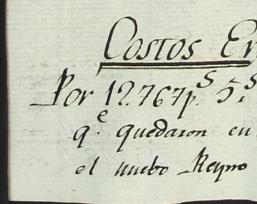 Costos Er
Por 12.767p.s 5.s
q.e quedaron en
el nuebo Reyno